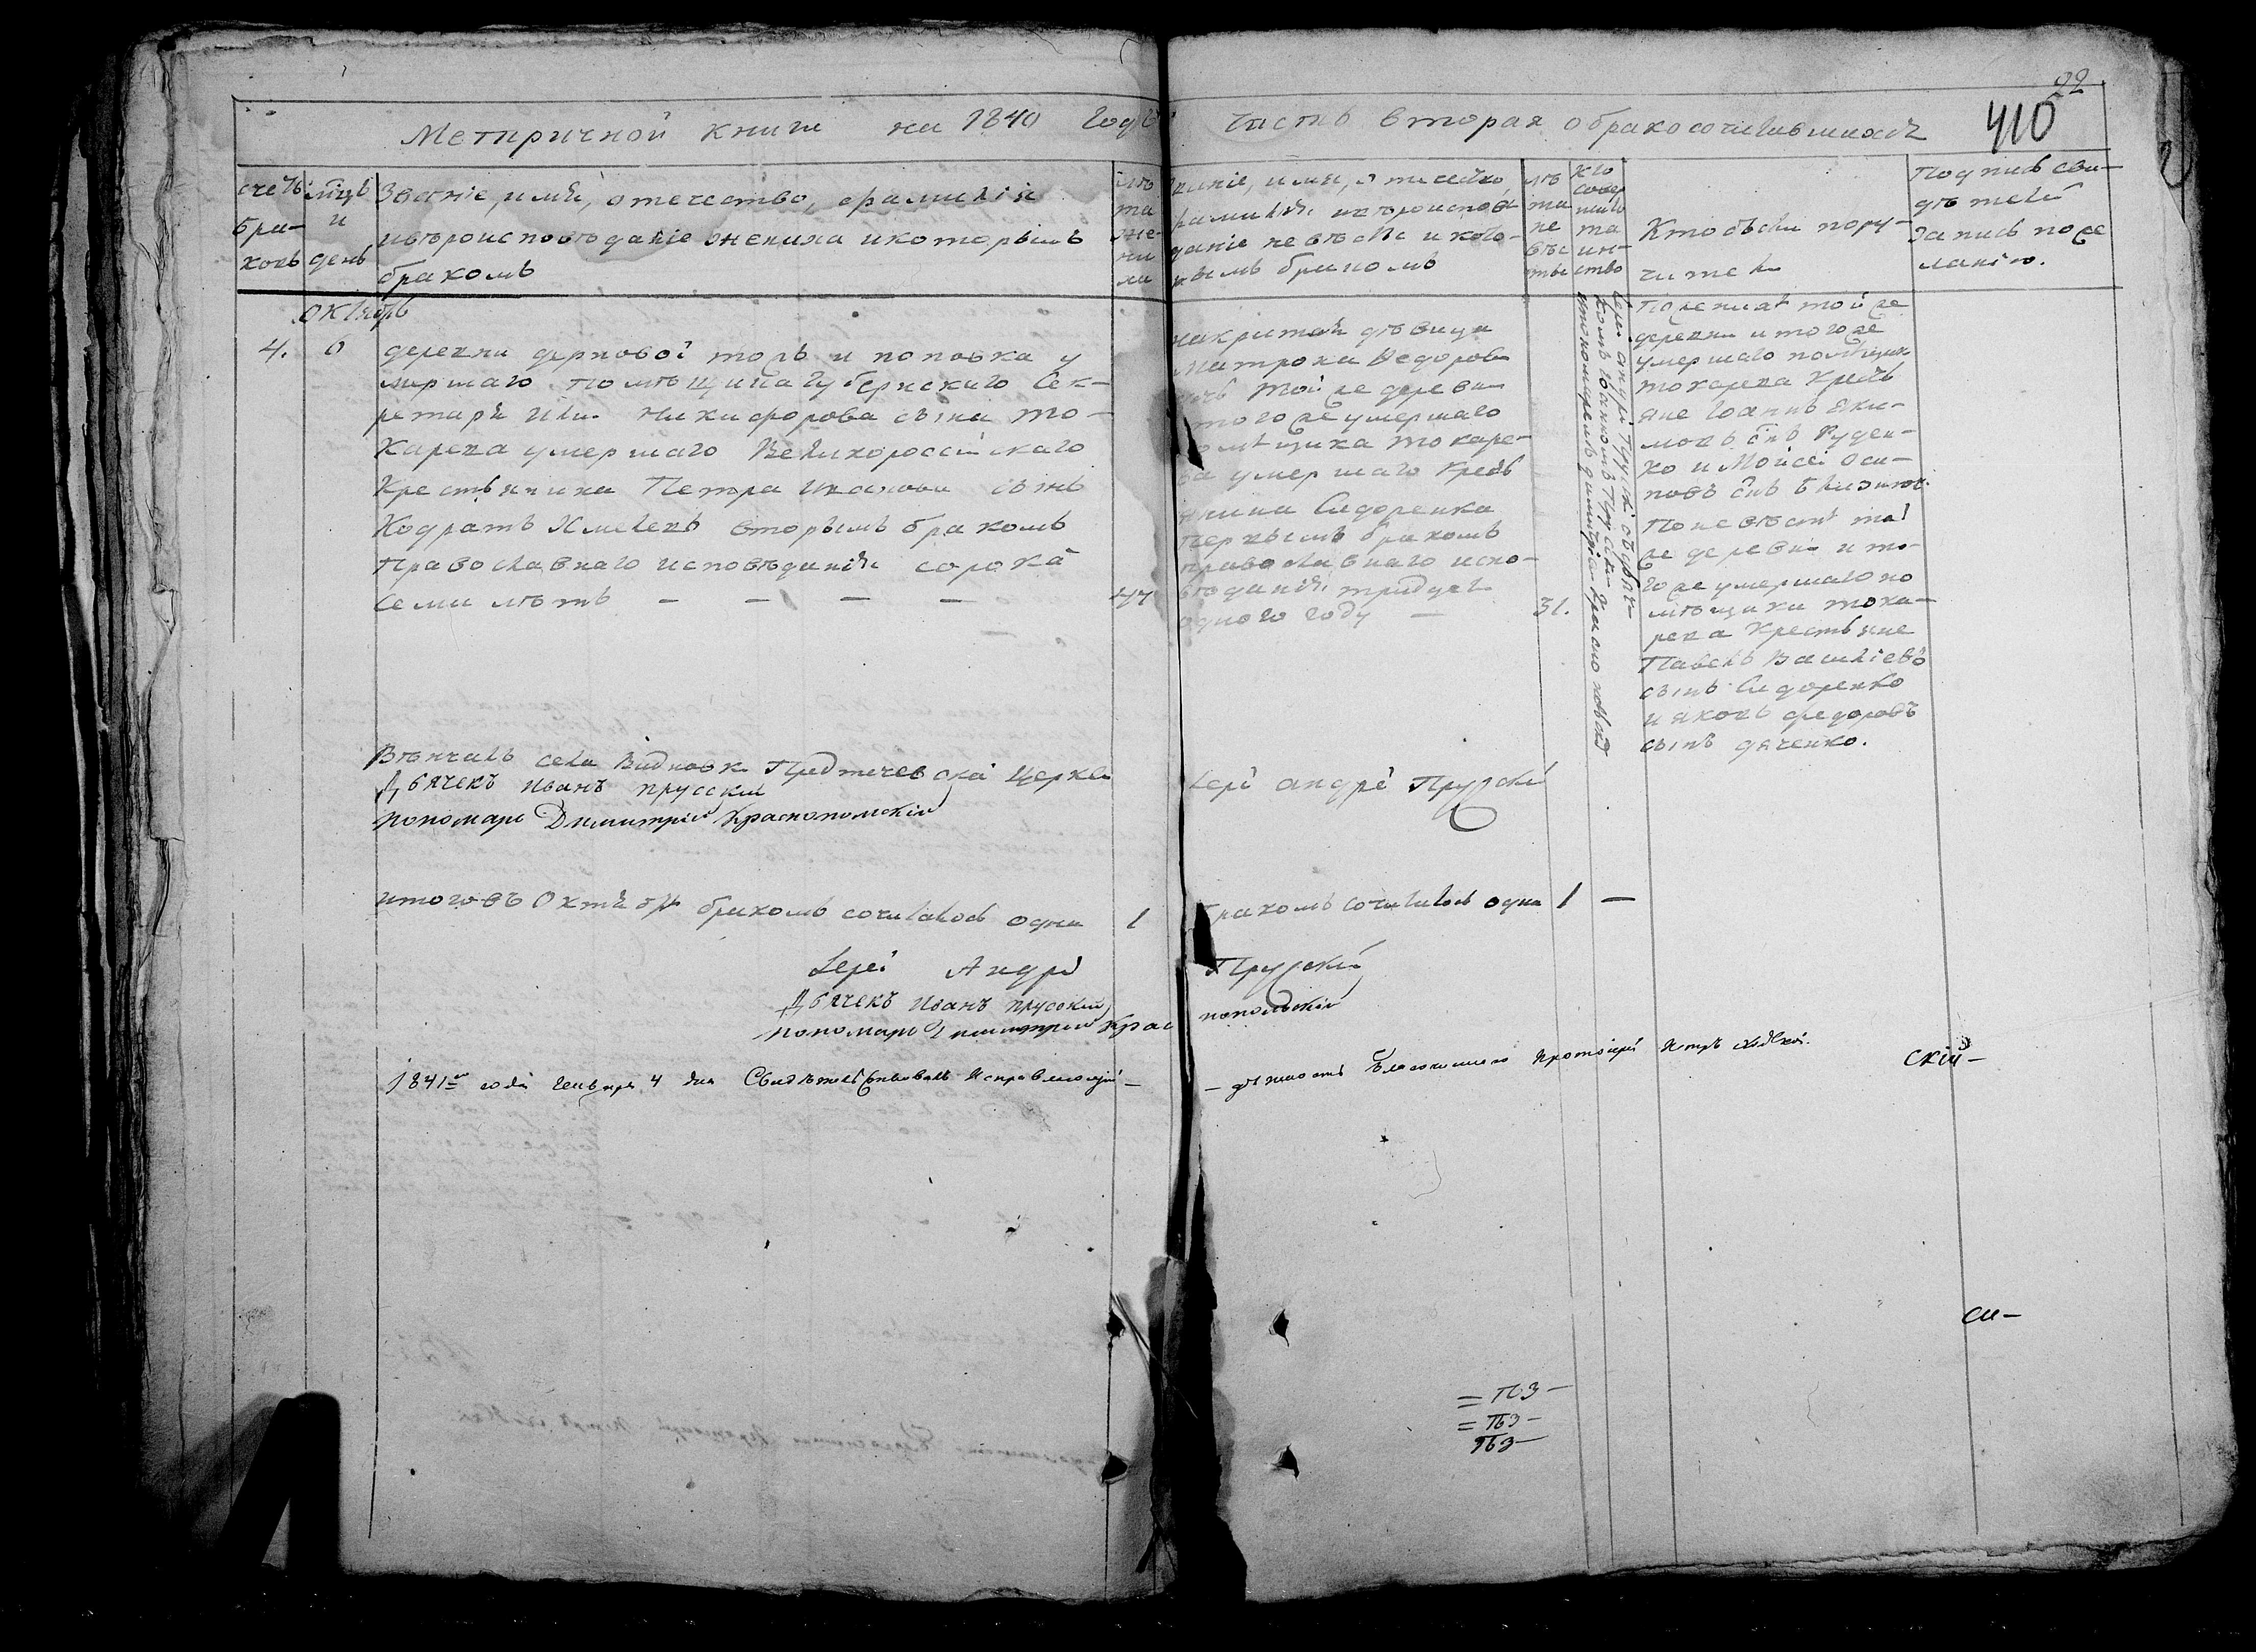 22
410
Метиричной книги на 1840 годъ
Часть вторая о бракосочитавшихся
счетъ браковъ
мцъ и день
Званіе, имя, отечество, фамилія
ивѣроисповѣданіе жениха икоторымъ
бракомъ
лѣта жениха
званіе, имя, отечество,
фамилія ивѣроиспов
даніе невѣсты и кото-
рымъ бракомъ
лѣта невѣсты
кто совершилъ таинство
Кто были пору-
чители
Подпись сви-
дѣтелей
запись поже
ланію.
октябрь
4.
деревни дерновой толъ и поповка у
мершаго помѣщика губернскаго Сек-
ретаря Никифорова сына То-
карева умершаго Великороссійскаго
Крестьянина Петра Иванова сынъ
Кодратъ Хмелевъ вторымъ бракомъ
Православнаго исповѣданія сорока
семи лѣтъ — — — —
47
дѣвица
Матрона Ѳедорова
дочь той же деревни
того же умершаго
помѣщика Токаре-
ва умершаго крест
янина Сидоренка
первымъ бракомъ
православнаго испо-
вѣданія тридцать
одного году —
31.
Іерей Андрей Прускій съ дья-
комъ Іоанномъ Прускимъ
ипономаремъ Димитріемъ Краснопольскимъ
По женихѣ той же
деревни и того же
умершаго помѣщика
токарева Кресть
яне Іоаннъ Яки-
мовъ снъ Руден-
ко и Мойсей Оси-
повъ снъ
По невѣстѣ той
же деревни и то-
го же умершаго по
мѣщика тока-
рева Крестьяне
Павелъ Василіевъ
сынъ Сидоренко
и яковъ федоровъ
сынъ дяченко.
Вѣнчалъ села Видновки Предтечевской Церкви
Іерей андрей Прускій
Дьячекъ Иванъ прусскій
пономарь Димитрій Краснопольскій
итого въ Октябрѣ бракомъ сочитался одинъ 1
бракомъ сочиталась одна 1 —
Іерей Андрей Прускій
Дьячекъ Иванъ прусскій
пономарь Димитрій Краснопольскій
1841го года Генваря 4 дня Свидѣтельствовалъ Исправляющій —
— должность благочиннаго Протоіерей Петръ
скій —
си —